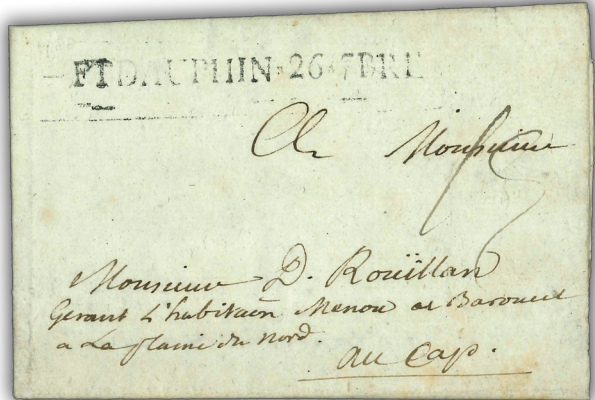 FT DAUPHIN · 26 · 7BRE
A Monsieur
Monsieur D. Rouïllan
Gerant L'habitaōn Menou et
a La plaine du Nord.
au Cap.